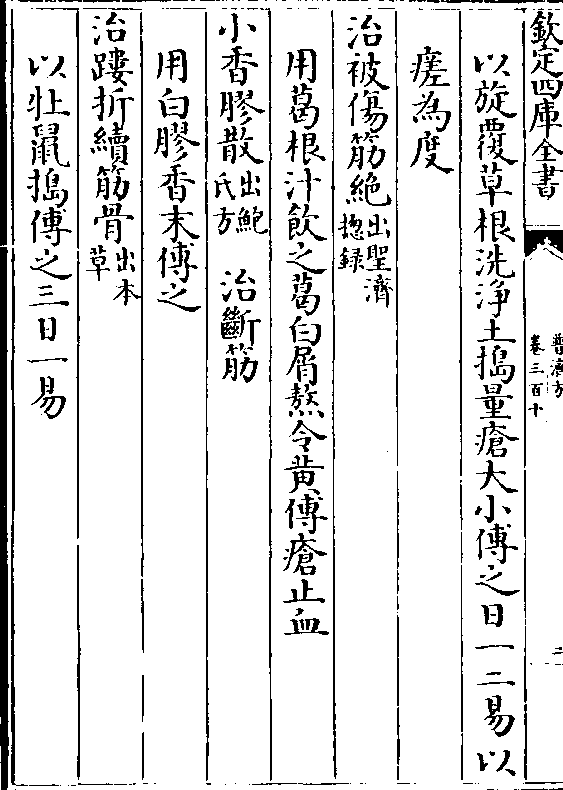 欽定四庫全書
普濟方
卷三百十
二
以旋覆草根洗淨土搗量瘡大小傅之日一二易以
瘥為度
治被傷筋絶出聖濟揔録
用葛根汁飲之葛白屑熬令黄傅瘡止血
小香膠散出鮑氏方 治斷筋
用白膠香末傅之
治踒折續筋骨出本草
以牡鼠搗傅之三日一易